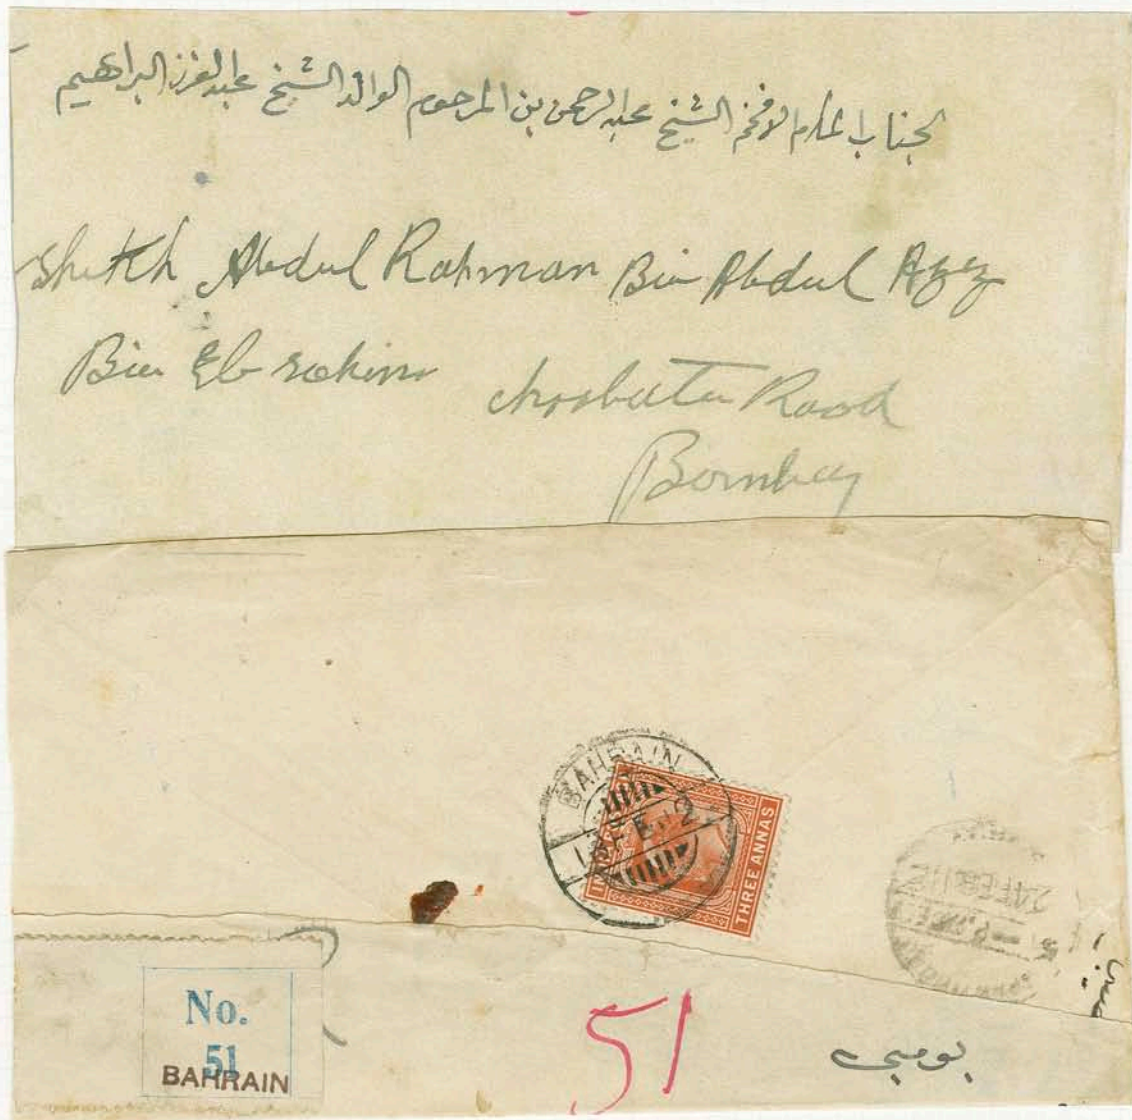 لجناب المكرم الافخم الشيخ عبدالرحمن بن المرحوم الوالد الشيخ عبدالعزيز البراهيم
Sheikh Abdul Rahman Bin Abdul Azyz
Bin Ebrahim
Road
Bombay
BAHRAIN
FE
INDIA
THREE ANNAS
24 FEB
No.
51
BAHRAIN
51
بومبي